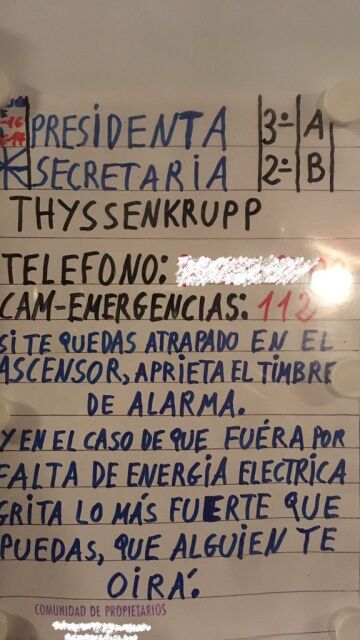 PRESIDENTA 3º A
SECRETARIA 2º B
THYSSENKRUPP
TELEFONO:
CAM-EMERGENCIAS: 112
SI TE QUEDAS ATRAPADO EN EL
ASCENSOR, APRIETA EL TIMBRE
DE ALARMA.
Y EN EL CASO DE QUE FUÉRA POR
FALTA DE ENERGIA ELECTRICA
GRITA LO MÁS FUERTE QUE
PUEDAS, QUE ALGUIEN TE
OIRÁ.
COMUNIDAD DE PROPIETARIOS